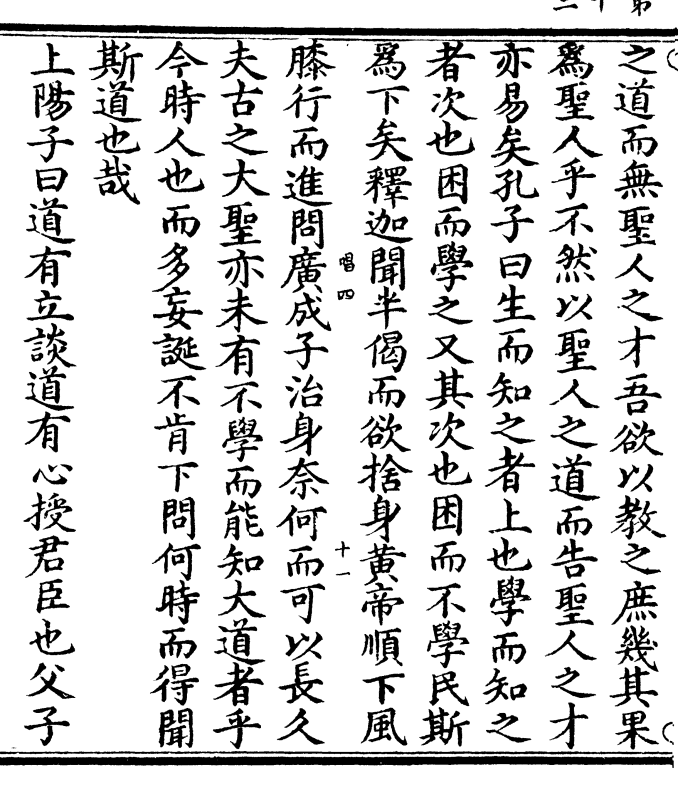 之道而無聖人之才吾欲以教之庶幾其果
爲聖人乎不然以聖人之道而告聖人之才
亦易矣孔子曰生而知之者上也學而知之
者次也困而學之又其次也困而不學民斯
爲下矣釋迦聞半偈而欲捨身黄帝順下風
唱四
十一
膝行而進問廣成子治身奈何而可以長久
夫古之大聖亦未有不學而能知大道者乎
今時人也而多妄誕不肯下問何時而得聞
斯道也哉
上陽子曰道有立談道有心授君臣也父子